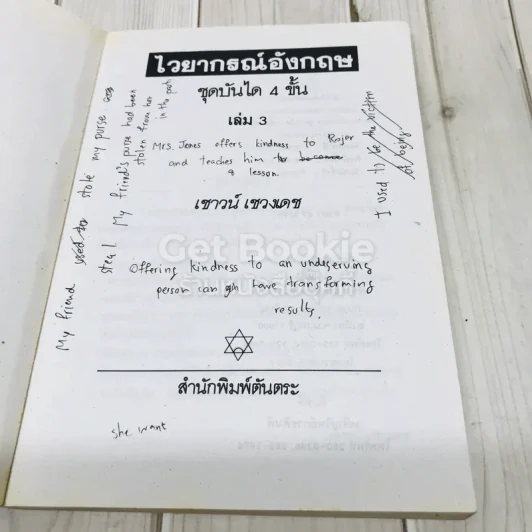 ไวยากรณ์อังกฤษ
ชุดบันได 4 ขั้น
เล่ม 3
Mrs. Jones offers kindness to Rojer
and teaches him to become
a lesson.
เชาวน์ เชวงเดช
Get Bookie
ร้านหนังสือบุ๊คกี้
Offering kindness to an undeserving
person can have transforming
results.
สำนักพิมพ์ต้นตระ
she want
My friend used to stole my purse
steal My friend's purse had been
stolen from her
in the past
I used to be the victim
of being